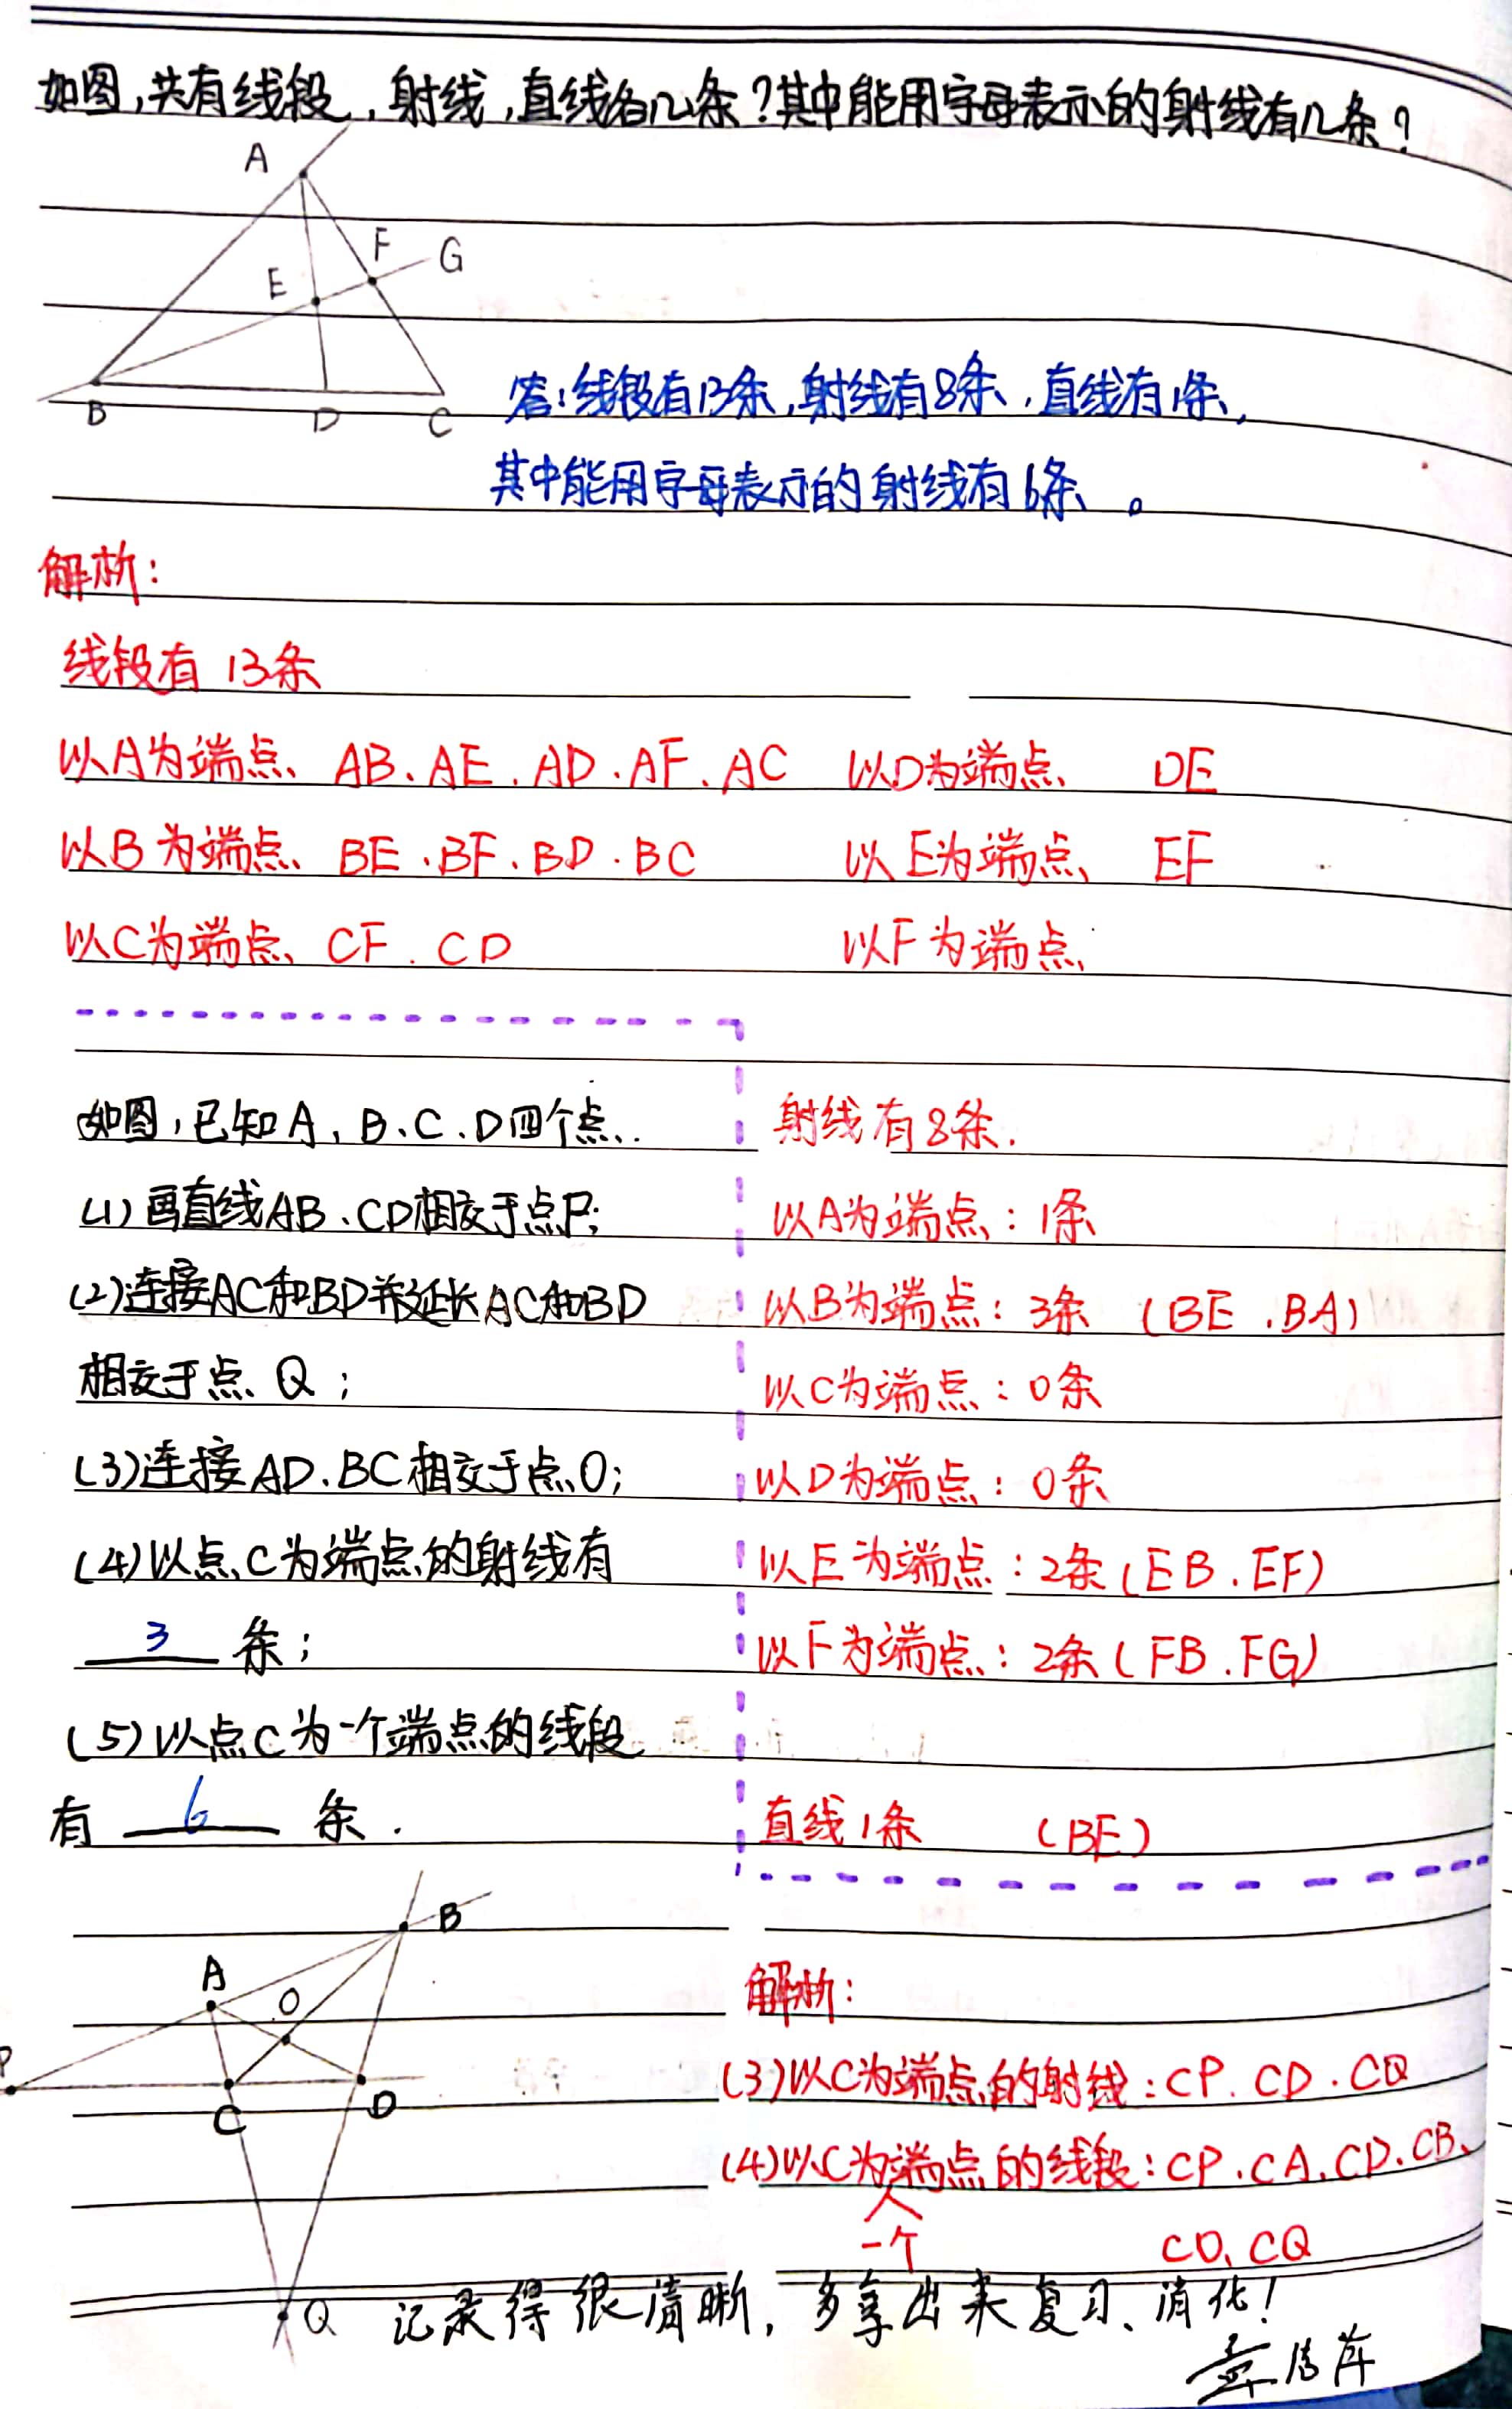 如图,共有线段,射线,直线各几条?其中能用字母表示的射线有几条?
A
F G
E
B D C
答:线段有13条,射线有8条,直线有1条,
其中能用字母表示的射线有6条。
解析:
线段有 13条
以A为端点、 AB、AE、AD、AF、AC 以D为端点、 DE
以B为端点、 BE、BF、BD、BC 以E为端点、 EF
以C为端点、CF、CD 以F为端点、
如图,已知A、B、C、D四个点.
(1)画直线AB、CD相交于点P;
(2)连接AC和BD并延长AC和BD
相交于点Q;
(3)连接AD、BC相交于点O;
(4)以点C为端点的射线有
3 条;
(5)以点C为一个端点的线段
有 6 条.
射线有8条.
以A为端点:1条
以B为端点:3条 (BE、BA)
以C为端点:0条
以D为端点:0条
以E为端点:2条(EB、EF)
以F为端点:2条(FB、FG)
直线1条 (BE)
B
A
O
P
C D
Q
解析:
(3)以C为端点的射线:CP、CD、CQ
(4)以C为端点的线段:CP、CA、CD、CB、
一个 CO、CQ
记录得很清晰,多拿出来复习、消化!